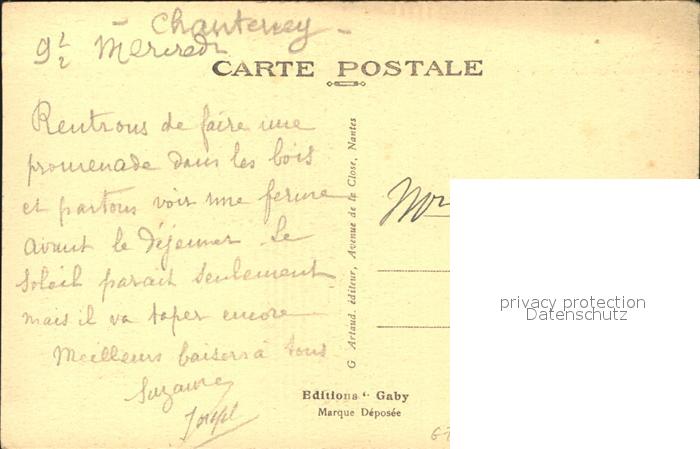 - Chantenay -
9 1/2 Mercredi
CARTE POSTALE
Rentrons de faire une
promenade dans les bois
et partons voir une ferme
avant le déjeuner. Le
Soleil parait seulement
mais il va taper encore
Meilleurs baisers à tous
Suzanne
Joseph
G Artaud. éditeur, Avenue de la Close, Nantes
Editions "Gaby
Marque Déposée
privacy protection
Datenschutz